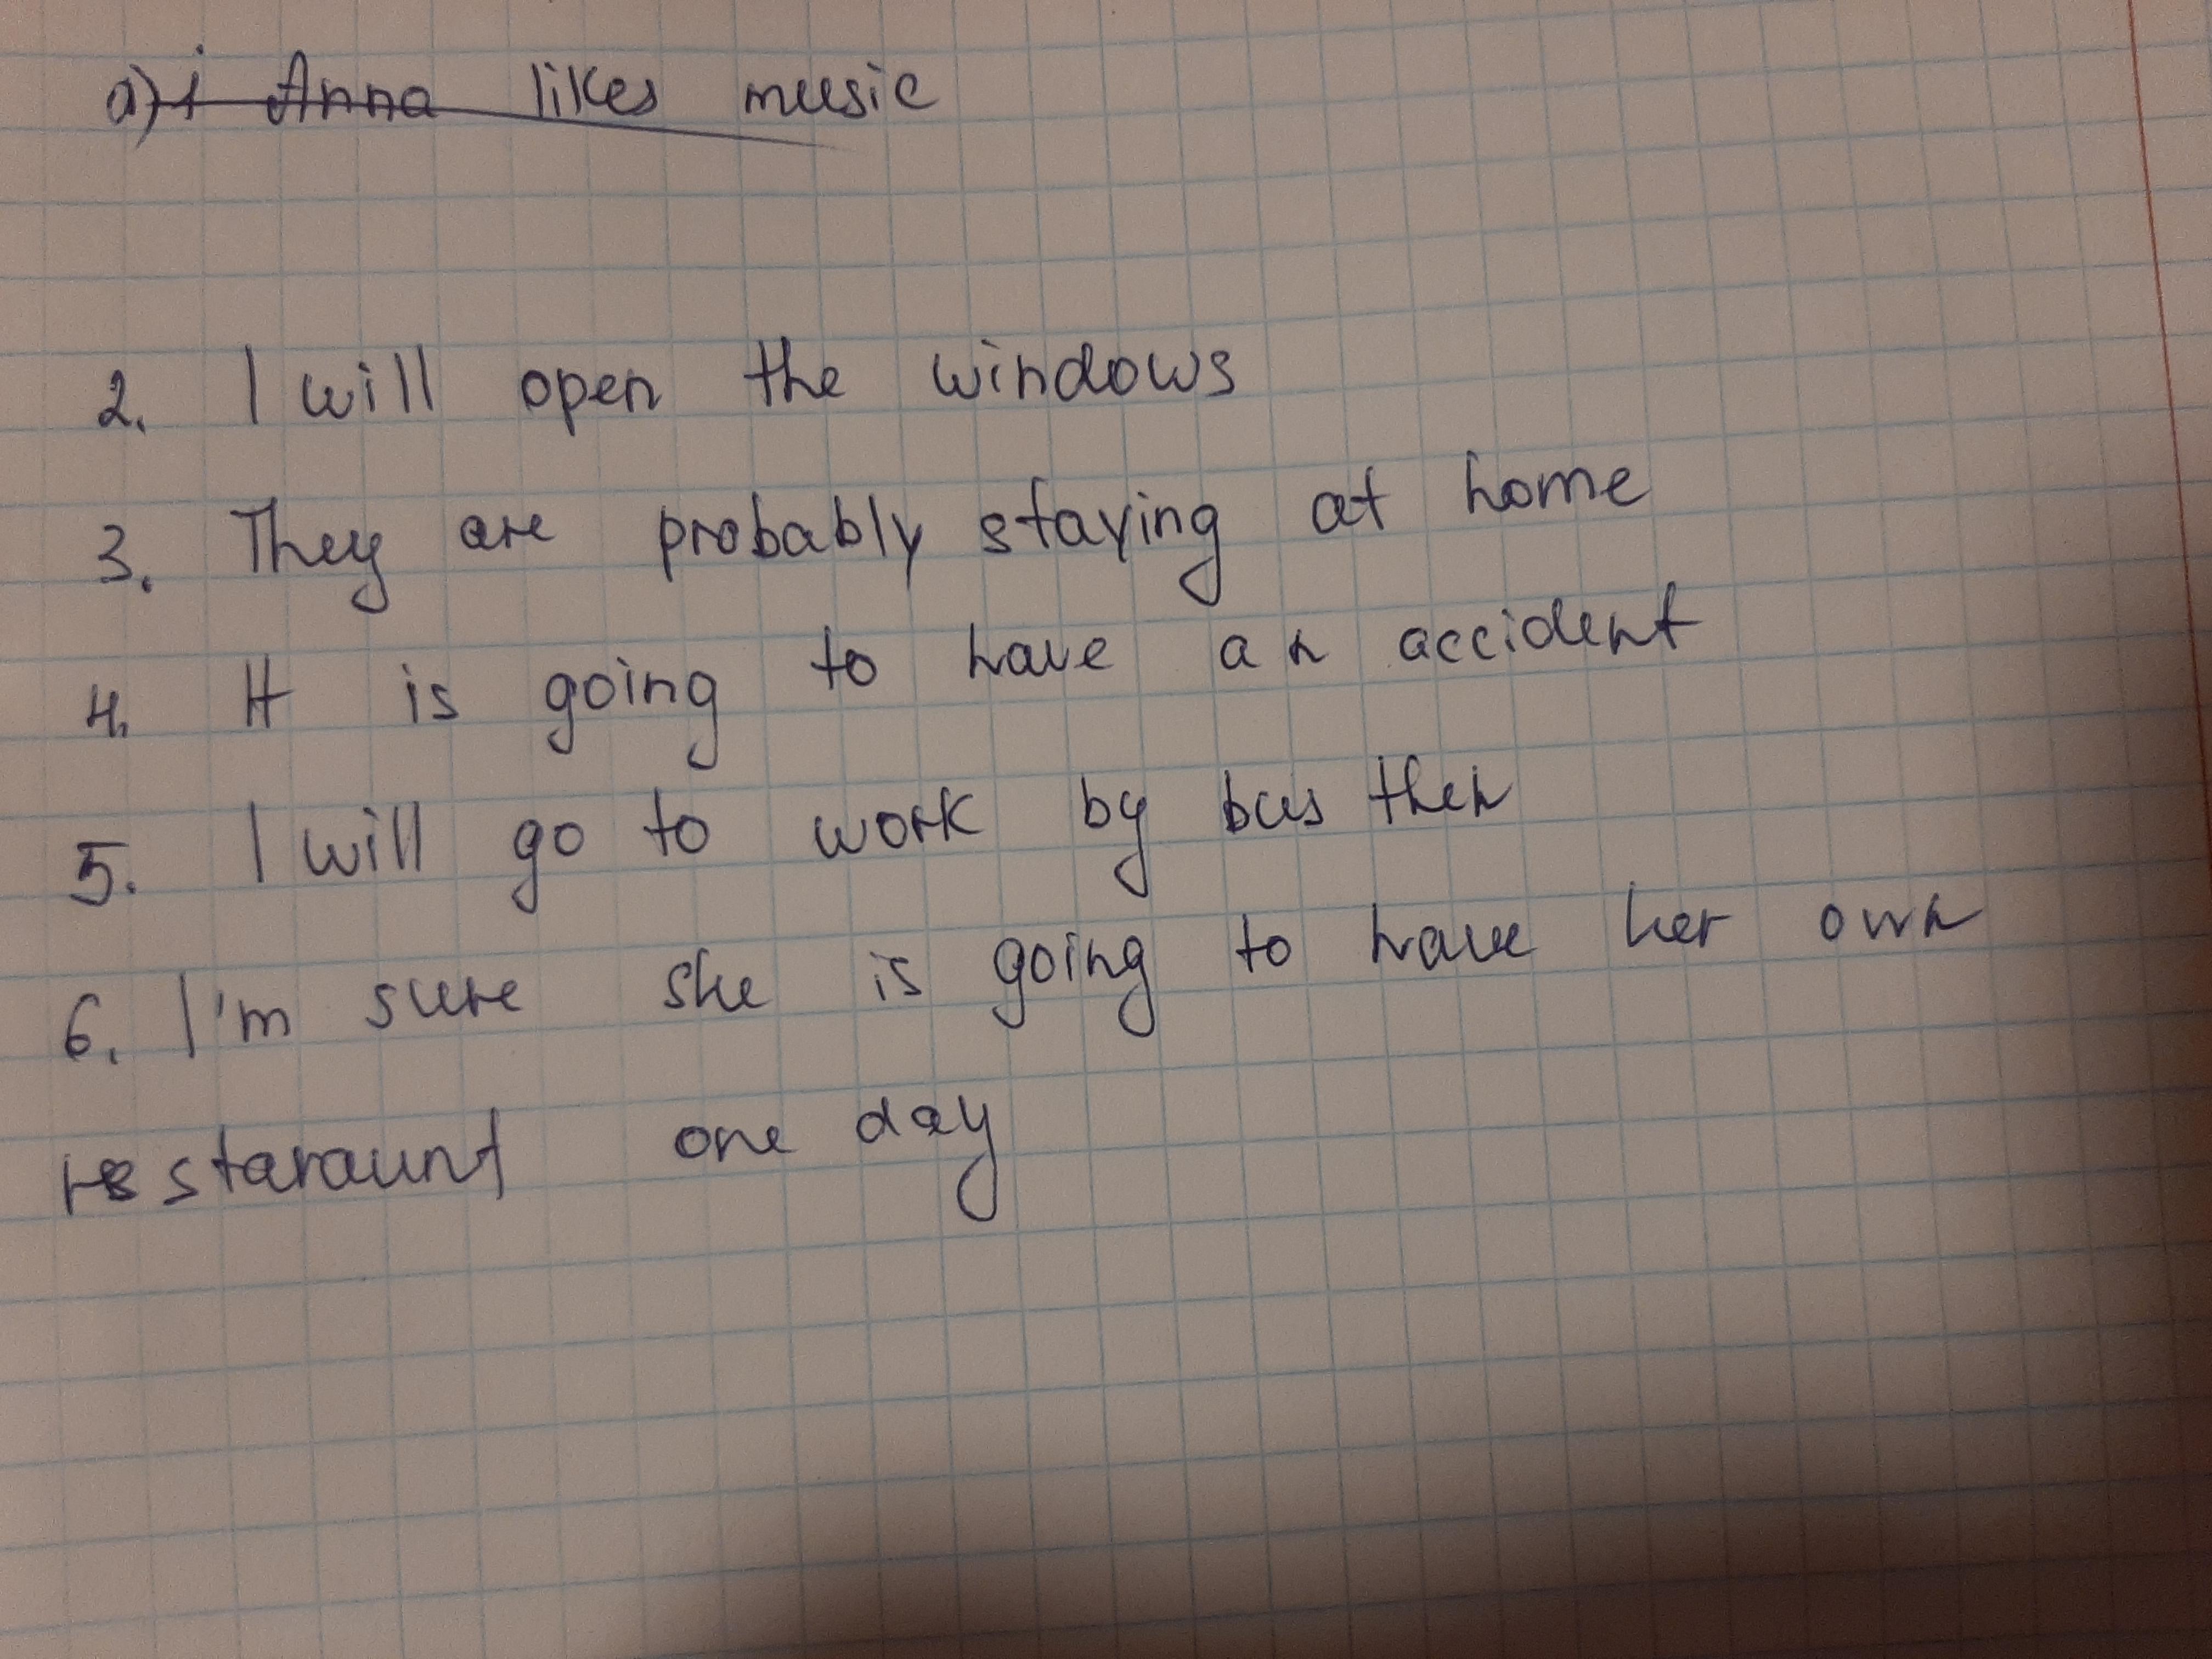 a) 1 Anna likes music
2. I will open the windows
3. They are probably staying at home
4. It is going to have an accident
5. I will go to work by bus then
6. I'm sure she is going to have her own
restaraunt one day